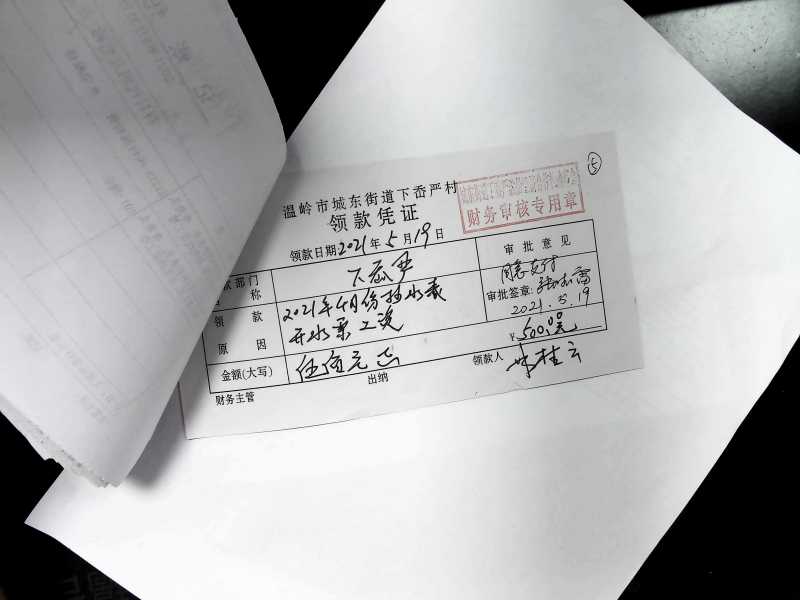 ⑤
温岭市城东街道下岙严村
领款凭证
财务审核专用章
领款日期2021年5月19日
款部门
名称
下岙严
审批意见
同意支付
领款
原因
2021年4月份抽水或
开水泵工资
审批签章:
2021.5.19
金额(大写)
伍佰元正
¥500.00元
财务主管
出纳
领款人
林桂云